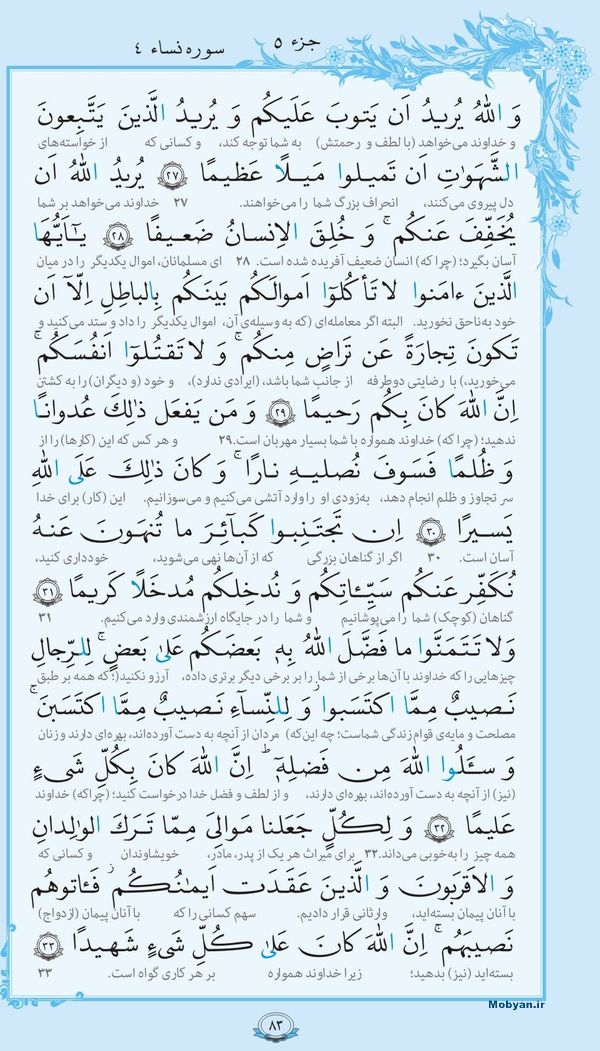 جزء ۵
سوره نساء ٤
وَ اللّٰهُ يُريدُ اَن يَتوبَ عَلَيكُم وَ يُريدُ الَّذينَ يَتَّبِعونَ
و خداوند می‌خواهد (با لطف و رحمتش) به شما توجه کند، و کسانی که از خواسته‌های
الشَّهَوٰتِ اَن تَميلوا مَيلًا عَظيمًا ﴿٢٧﴾ يُريدُ اللّٰهُ اَن
دل پیروی می‌کنند، انحراف بزرگ شما را می‌خواهند. ۲۷ خداوند می‌خواهد بر شما
يُخَفِّفَ عَنكُم ۚ وَ خُلِقَ الاِنسانُ ضَعيفًا ﴿٢٨﴾ يٰٓاَيُّهَا
آسان بگیرد؛ (چرا که) انسان ضعیف آفریده شده است. ۲۸ ای مسلمانان، اموال یکدیگر را در میان
الَّذينَ ءامَنوا لا تَأكُلوٓا اَموالَكُم بَينَكُم بِالباطِلِ اِلّآ اَن
خود به‌ناحق نخورید. البته اگر معامله‌ای (که به وسیله‌ی آن، اموال یکدیگر را داد و ستد می‌کنید و
تَكونَ تِجارَةً عَن تَراضٍ مِنكُم ۚ وَ لا تَقتُلوٓا اَنفُسَكُم ۚ
می‌خورید،) با رضایتی دوطرفه از جانب شما باشد، (ایرادی ندارد)، و خود (و دیگران) را به کشتن
اِنَّ اللّٰهَ كانَ بِكُم رَحيمًا ﴿٢٩﴾ وَ مَن يَفعَل ذٰلِكَ عُدوانًا
ندهید؛ (چرا که) خداوند همواره با شما بسیار مهربان است.۲۹ و هر کس که این (کارها) را از
وَ ظُلمًا فَسَوفَ نُصليهِ نارًا ۚ وَ كانَ ذٰلِكَ عَلَى اللّٰهِ
سر تجاوز و ظلم انجام دهد، به‌زودی او را وارد آتشی می‌کنیم و می‌سوزانیم. این (کار) برای خدا
يَسيرًا ﴿٣٠﴾ اِن تَجتَنِبوا كَبآئِرَ ما تُنهَونَ عَنهُ
آسان است. ۳۰ اگر از گناهان بزرگی که از آن‌ها نهی می‌شوید، خودداری کنید،
نُكَفِّر عَنكُم سَيِّـٔاتِكُم وَ نُدخِلكُم مُدخَلًا كَريمًا ﴿٣١﴾
گناهان (کوچک) شما را می‌پوشانیم و شما را در جایگاه ارزشمندی وارد می‌کنیم. ۳۱
وَ لا تَتَمَنَّوا ما فَضَّلَ اللّٰهُ بِهٖ بَعضَكُم عَلىٰ بَعضٍ ۚ لِلرِّجالِ
چیزهایی را که خداوند با آن‌ها برخی از شما را بر برخی دیگر برتری داده، آرزو نکنید؛( که همه بر طبق
نَصيبٌ مِمَّا اكتَسَبوا ۖ وَ لِلنِّسآءِ نَصيبٌ مِمَّا اكتَسَبنَ ۚ
مصلحت و مایه‌ی قوام زندگی شماست؛ چه این‌که) مردان از آنچه به دست آورده‌اند، بهره‌ای دارند و زنان
وَ سـَٔلُوا اللّٰهَ مِن فَضلِهٖ ۗ اِنَّ اللّٰهَ كانَ بِكُلِّ شَیءٍ
(نیز) از آنچه به دست آورده‌اند، بهره‌ای دارند، و از لطف و فضل خدا درخواست کنید؛ (چراکه) خداوند
عَليمًا ﴿٣٢﴾ وَ لِكُلٍّ جَعَلنا مَوالِیَ مِمّا تَرَكَ الوالِدانِ
همه چیز را به‌خوبی می‌داند.۳۲ برای میراث هر یک از پدر، مادر، خویشاوندان و کسانی که
وَ الاَقرَبونَ ۚ وَ الَّذينَ عَقَدَت اَيمٰنُكُم فَـٔاتوهُم
با آنان پیمان بسته‌اید، وارثانی قرار دادیم. سهم کسانی را که با آنان پیمان (ازدواج)
نَصيبَهُم ۚ اِنَّ اللّٰهَ كانَ عَلىٰ كُلِّ شَیءٍ شَهيدًا ﴿٣٣﴾
بسته‌اید (نیز) بدهید؛ زیرا خداوند همواره بر هر کاری گواه است. ۳۳
Mobyan.ir
۸۳